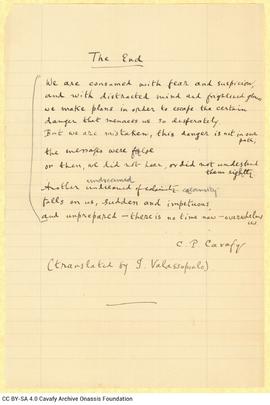 The End
We are consumed with fear and suspicion,
and with distracted mind and frightened
we make plans in order to escape the certain
danger that menaces us so desperately.
But we are mistaken, this danger is not in our
path;
the messages were false
or then, we did not hear, or did not understand
them rightly.
undreamed
Another undreamed of calamity calamity
falls on us, sudden and impetuous,
and unprepared — there is no time now — overwhelms
us
C. P. Cavafy
(translated by G. Valassopoulo)
CC BY-SA 4.0 Cavafy Archive Onassis Foundation